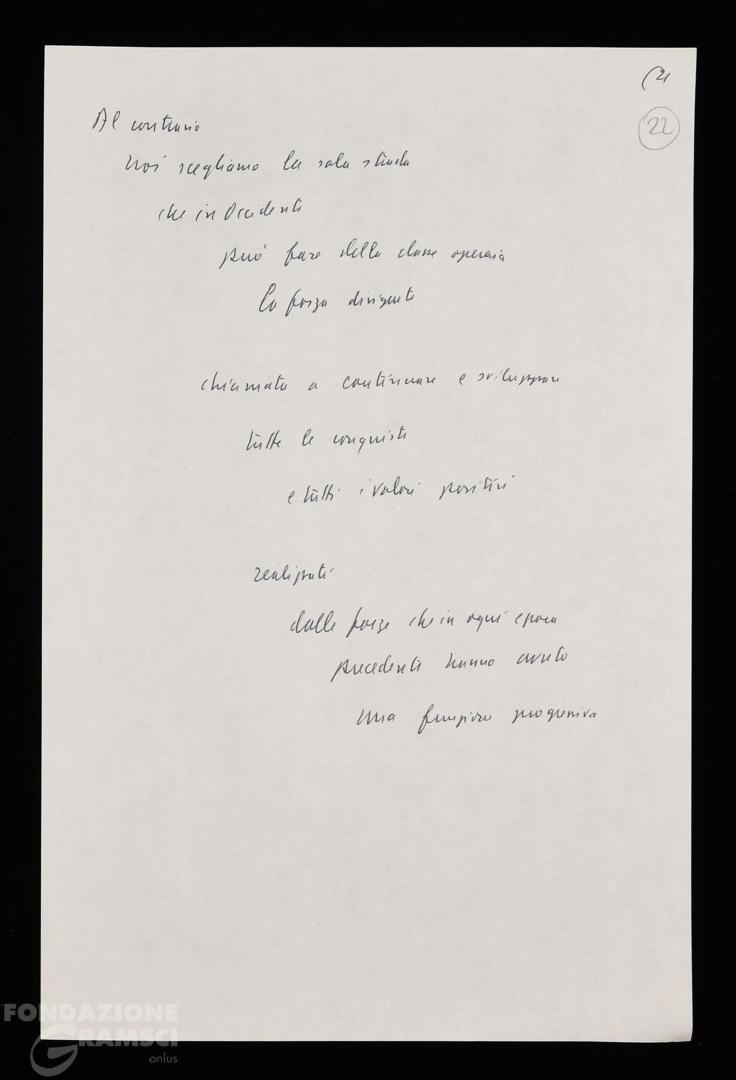 (21
22
Al contrario
noi scegliamo la sola strada
che in Occidente
può fare della classe operaia
la forza dirigente
chiamata a continuare e sviluppare
tutte le conquiste
e tutti i valori positivi
realizzati
dalle forze che in ogni epoca
precedente hanno avuto
una funzione progressiva
FONDAZIONE
GRAMSCI
onlus